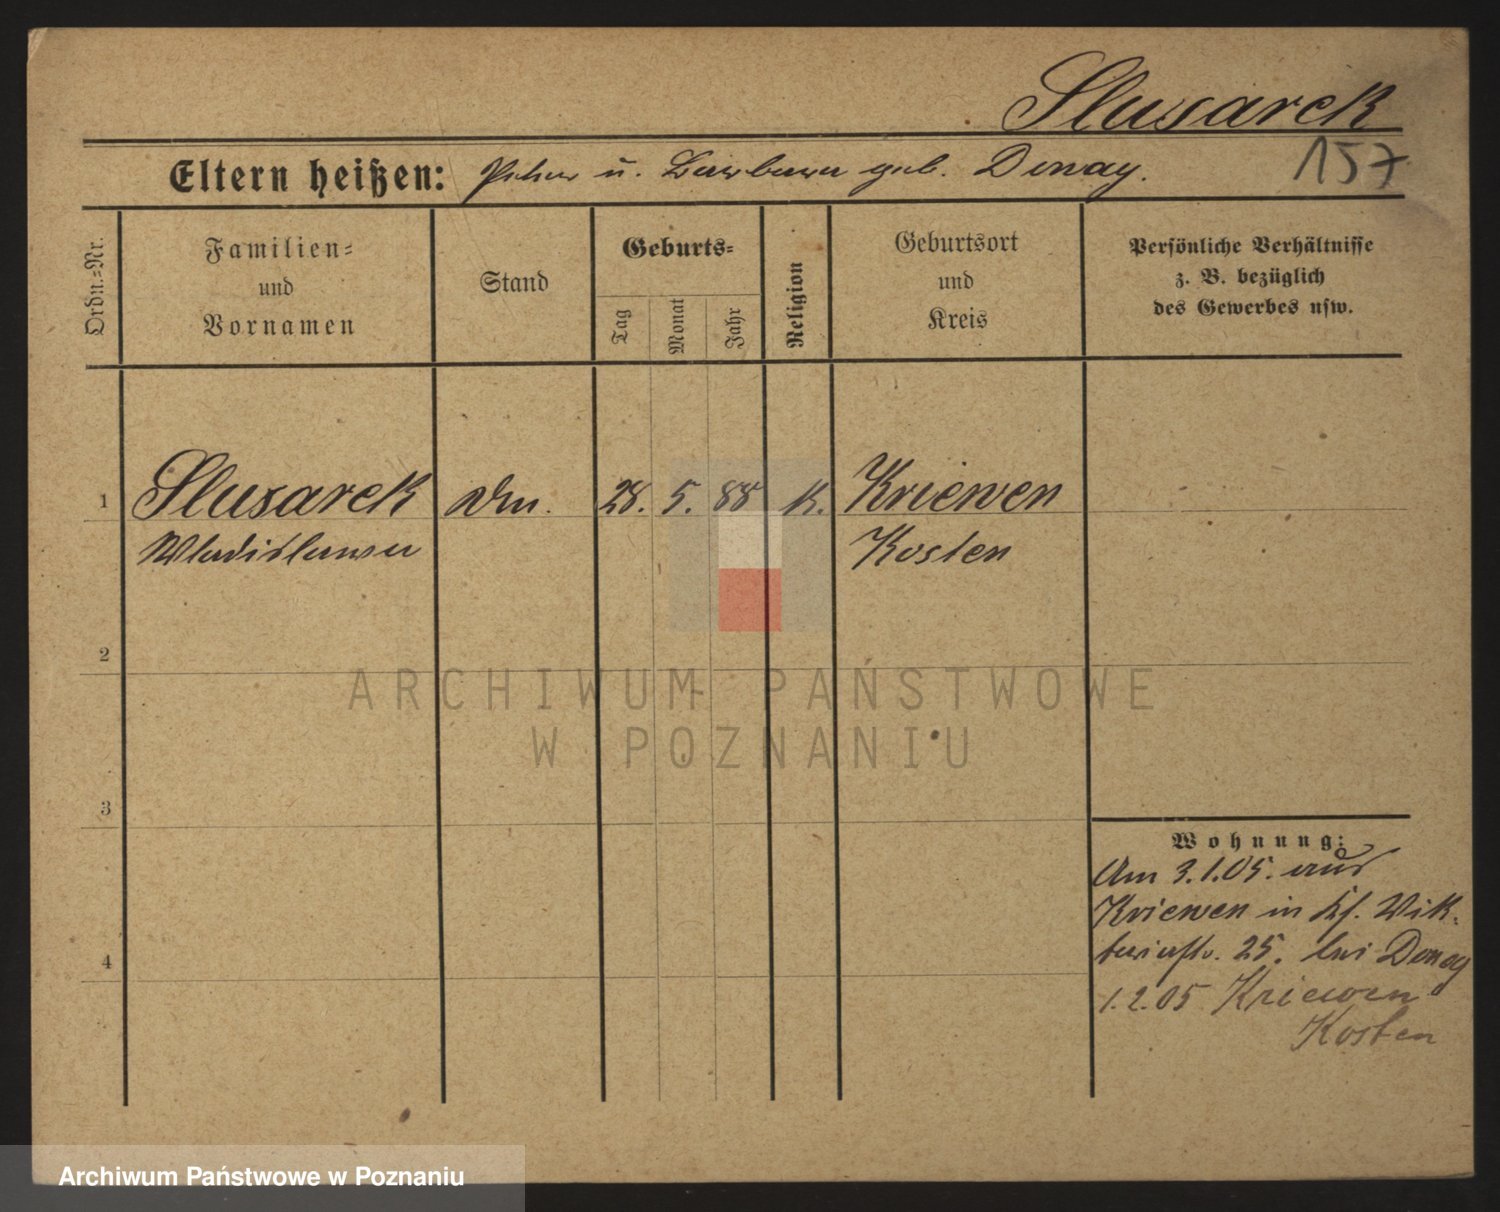 Slusarek
Eltern heißen: Peter u. Barbara geb. Donay.
157
Ordn.-Nr.
Familien-
und
Vornamen
Stand
Geburts-
Tag
Monat
Jahr
Religion
Geburtsort
und
Kreis
Persönliche Verhältnisse
z. B. bezüglich
des Gewerbes usw.
1 Slusarek 28. 5. 88 K. Kriewen
Wladislawa Kosten
2
3
4
Wohnung:
Am 3.1.05. aus
Kriewen in Wik-
toriastr. 25. bei Donay
1.2.05 Kriewen
Kosten
ARCHIWUM PAŃSTWOWE
W POZNANIU
Archiwum Państwowe w Poznaniu